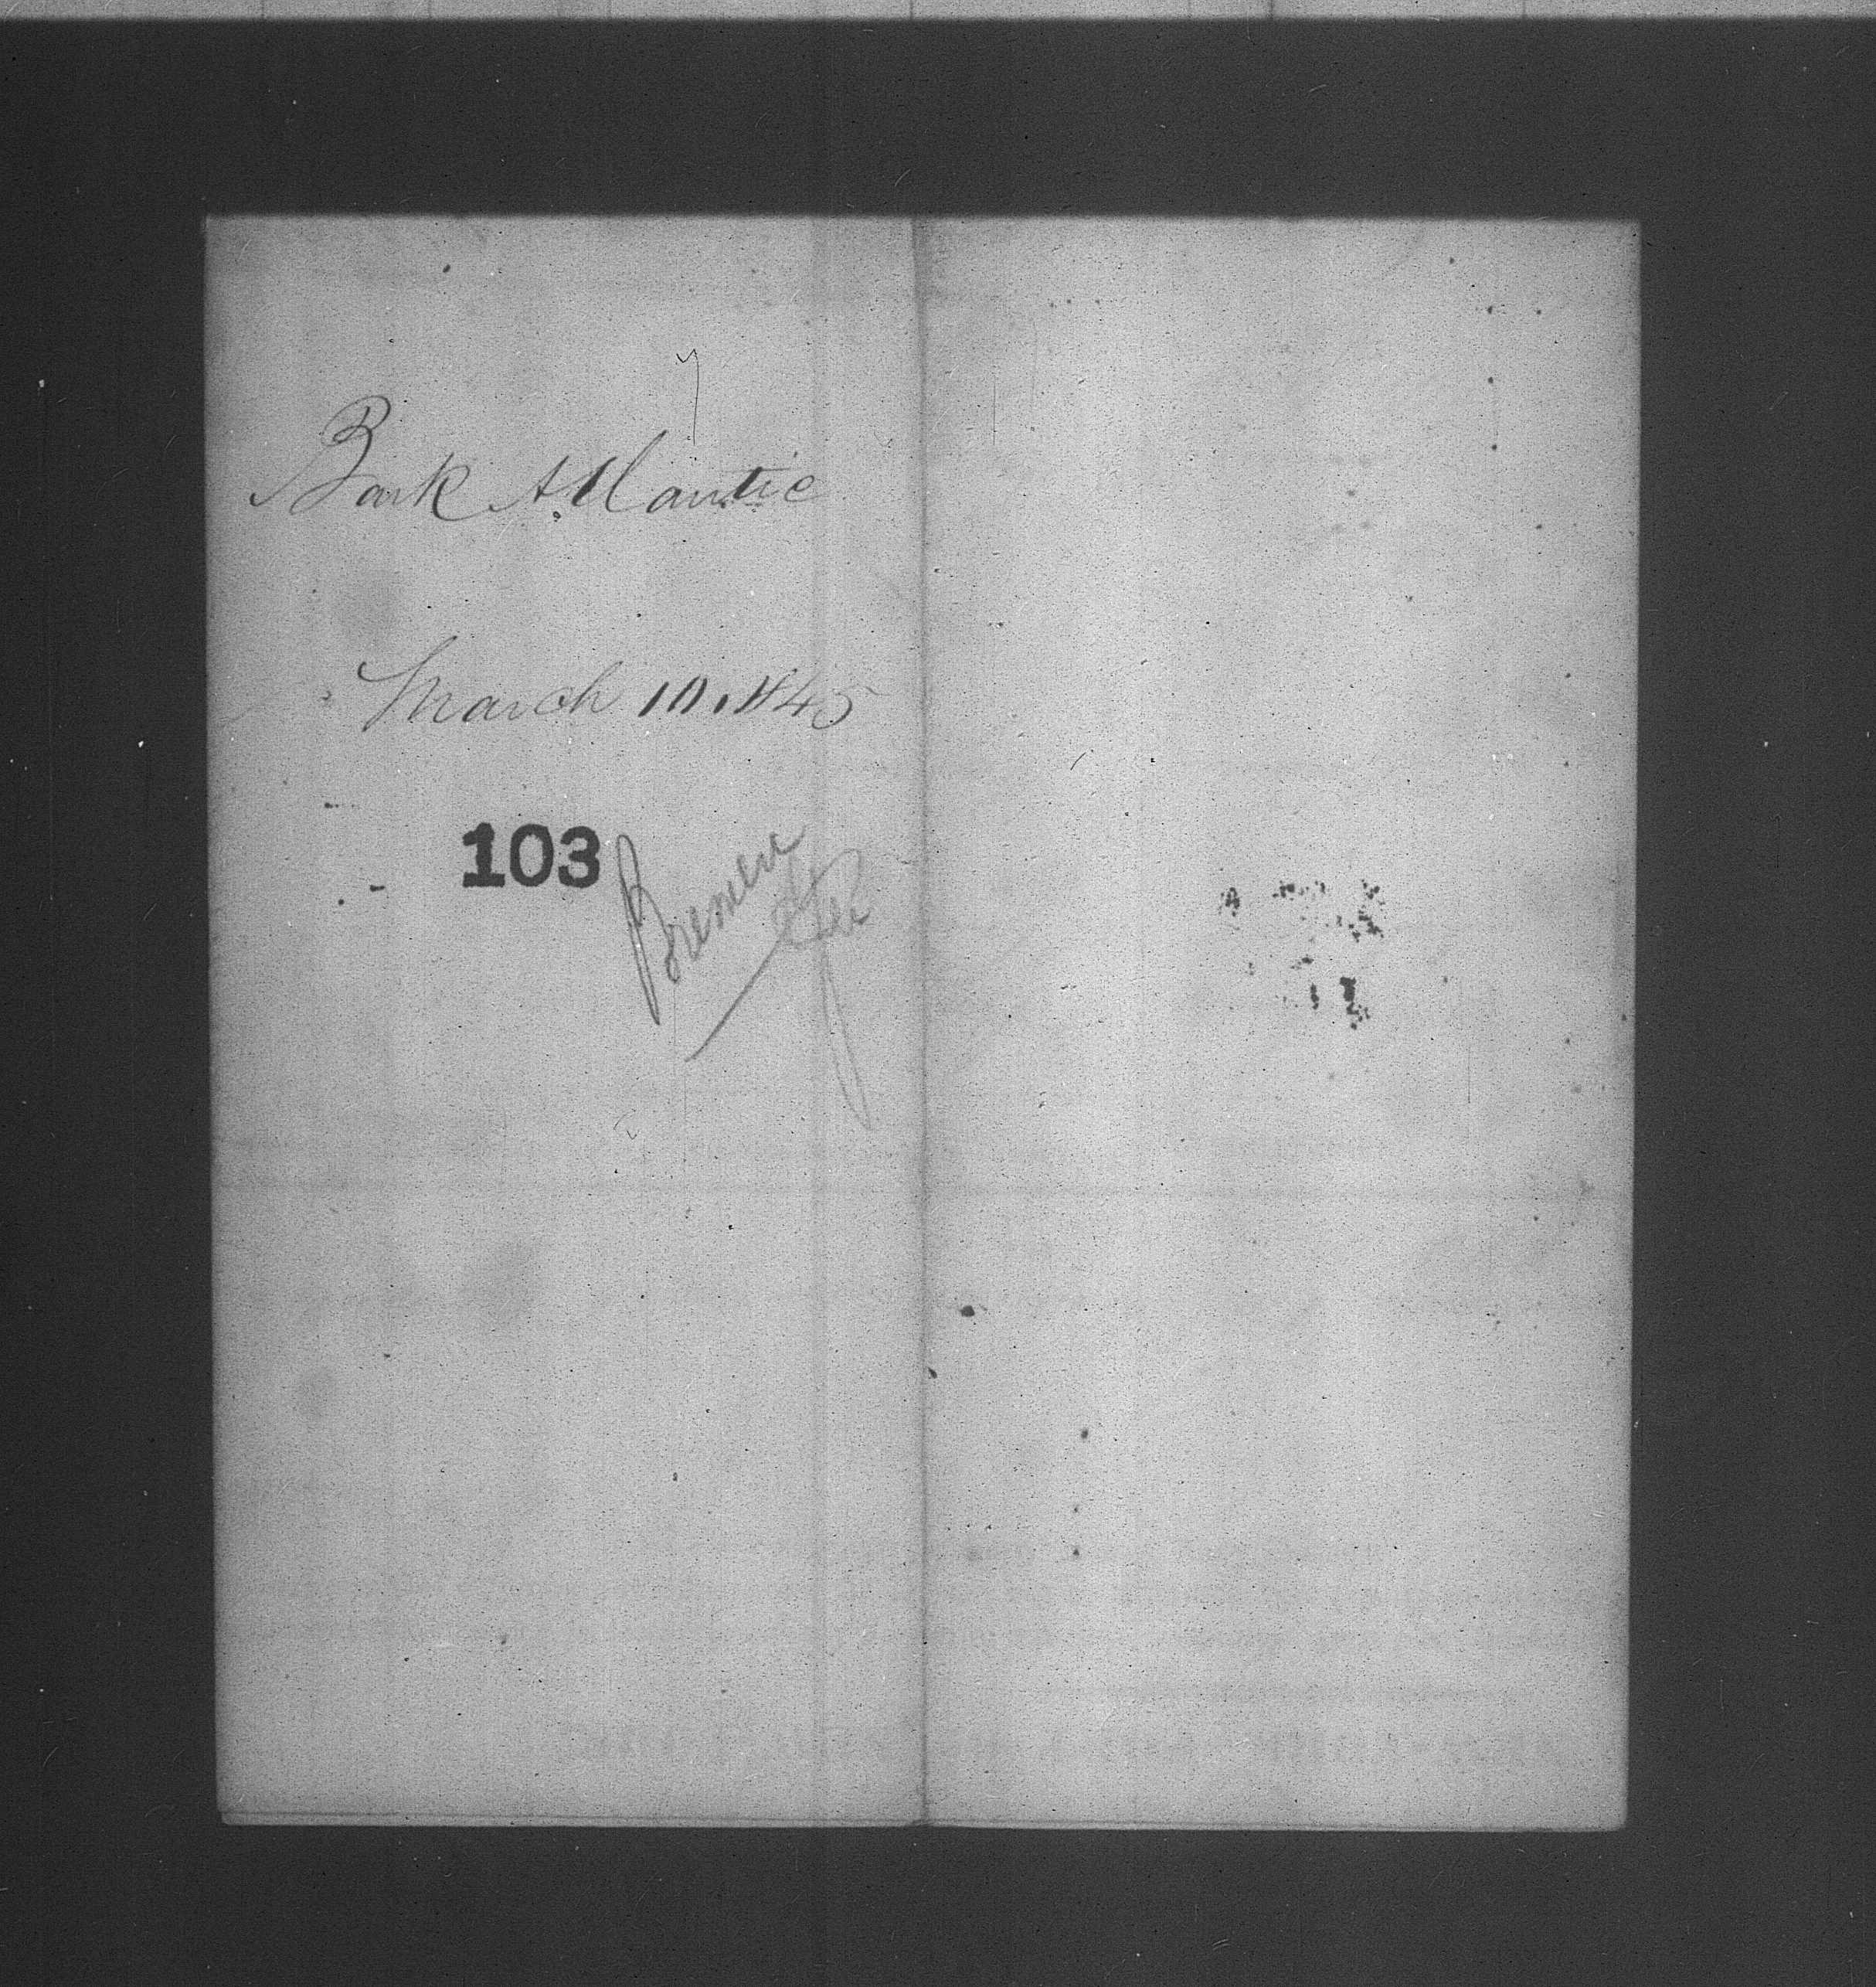 Bark Atlantic
March 10. 1845
103
Bremen